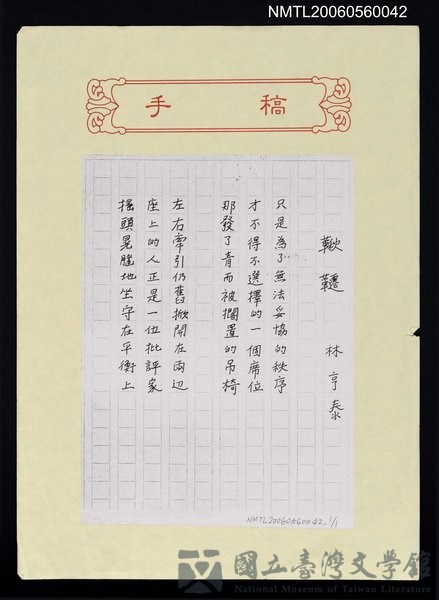 NMTL20060560042
手稿
鞦韆
林亨泰
只是為了無法妥協的秩序
才不得不選擇的一個席位
那發了青而被擱置的吊椅
左右牽引仍舊掀開在兩边
座上的人正是一位批評家
搖頭晃腦地坐守在平衡上
NMTL20060560042, 1/1
國立臺灣文學館
National Museum of Taiwan Literature